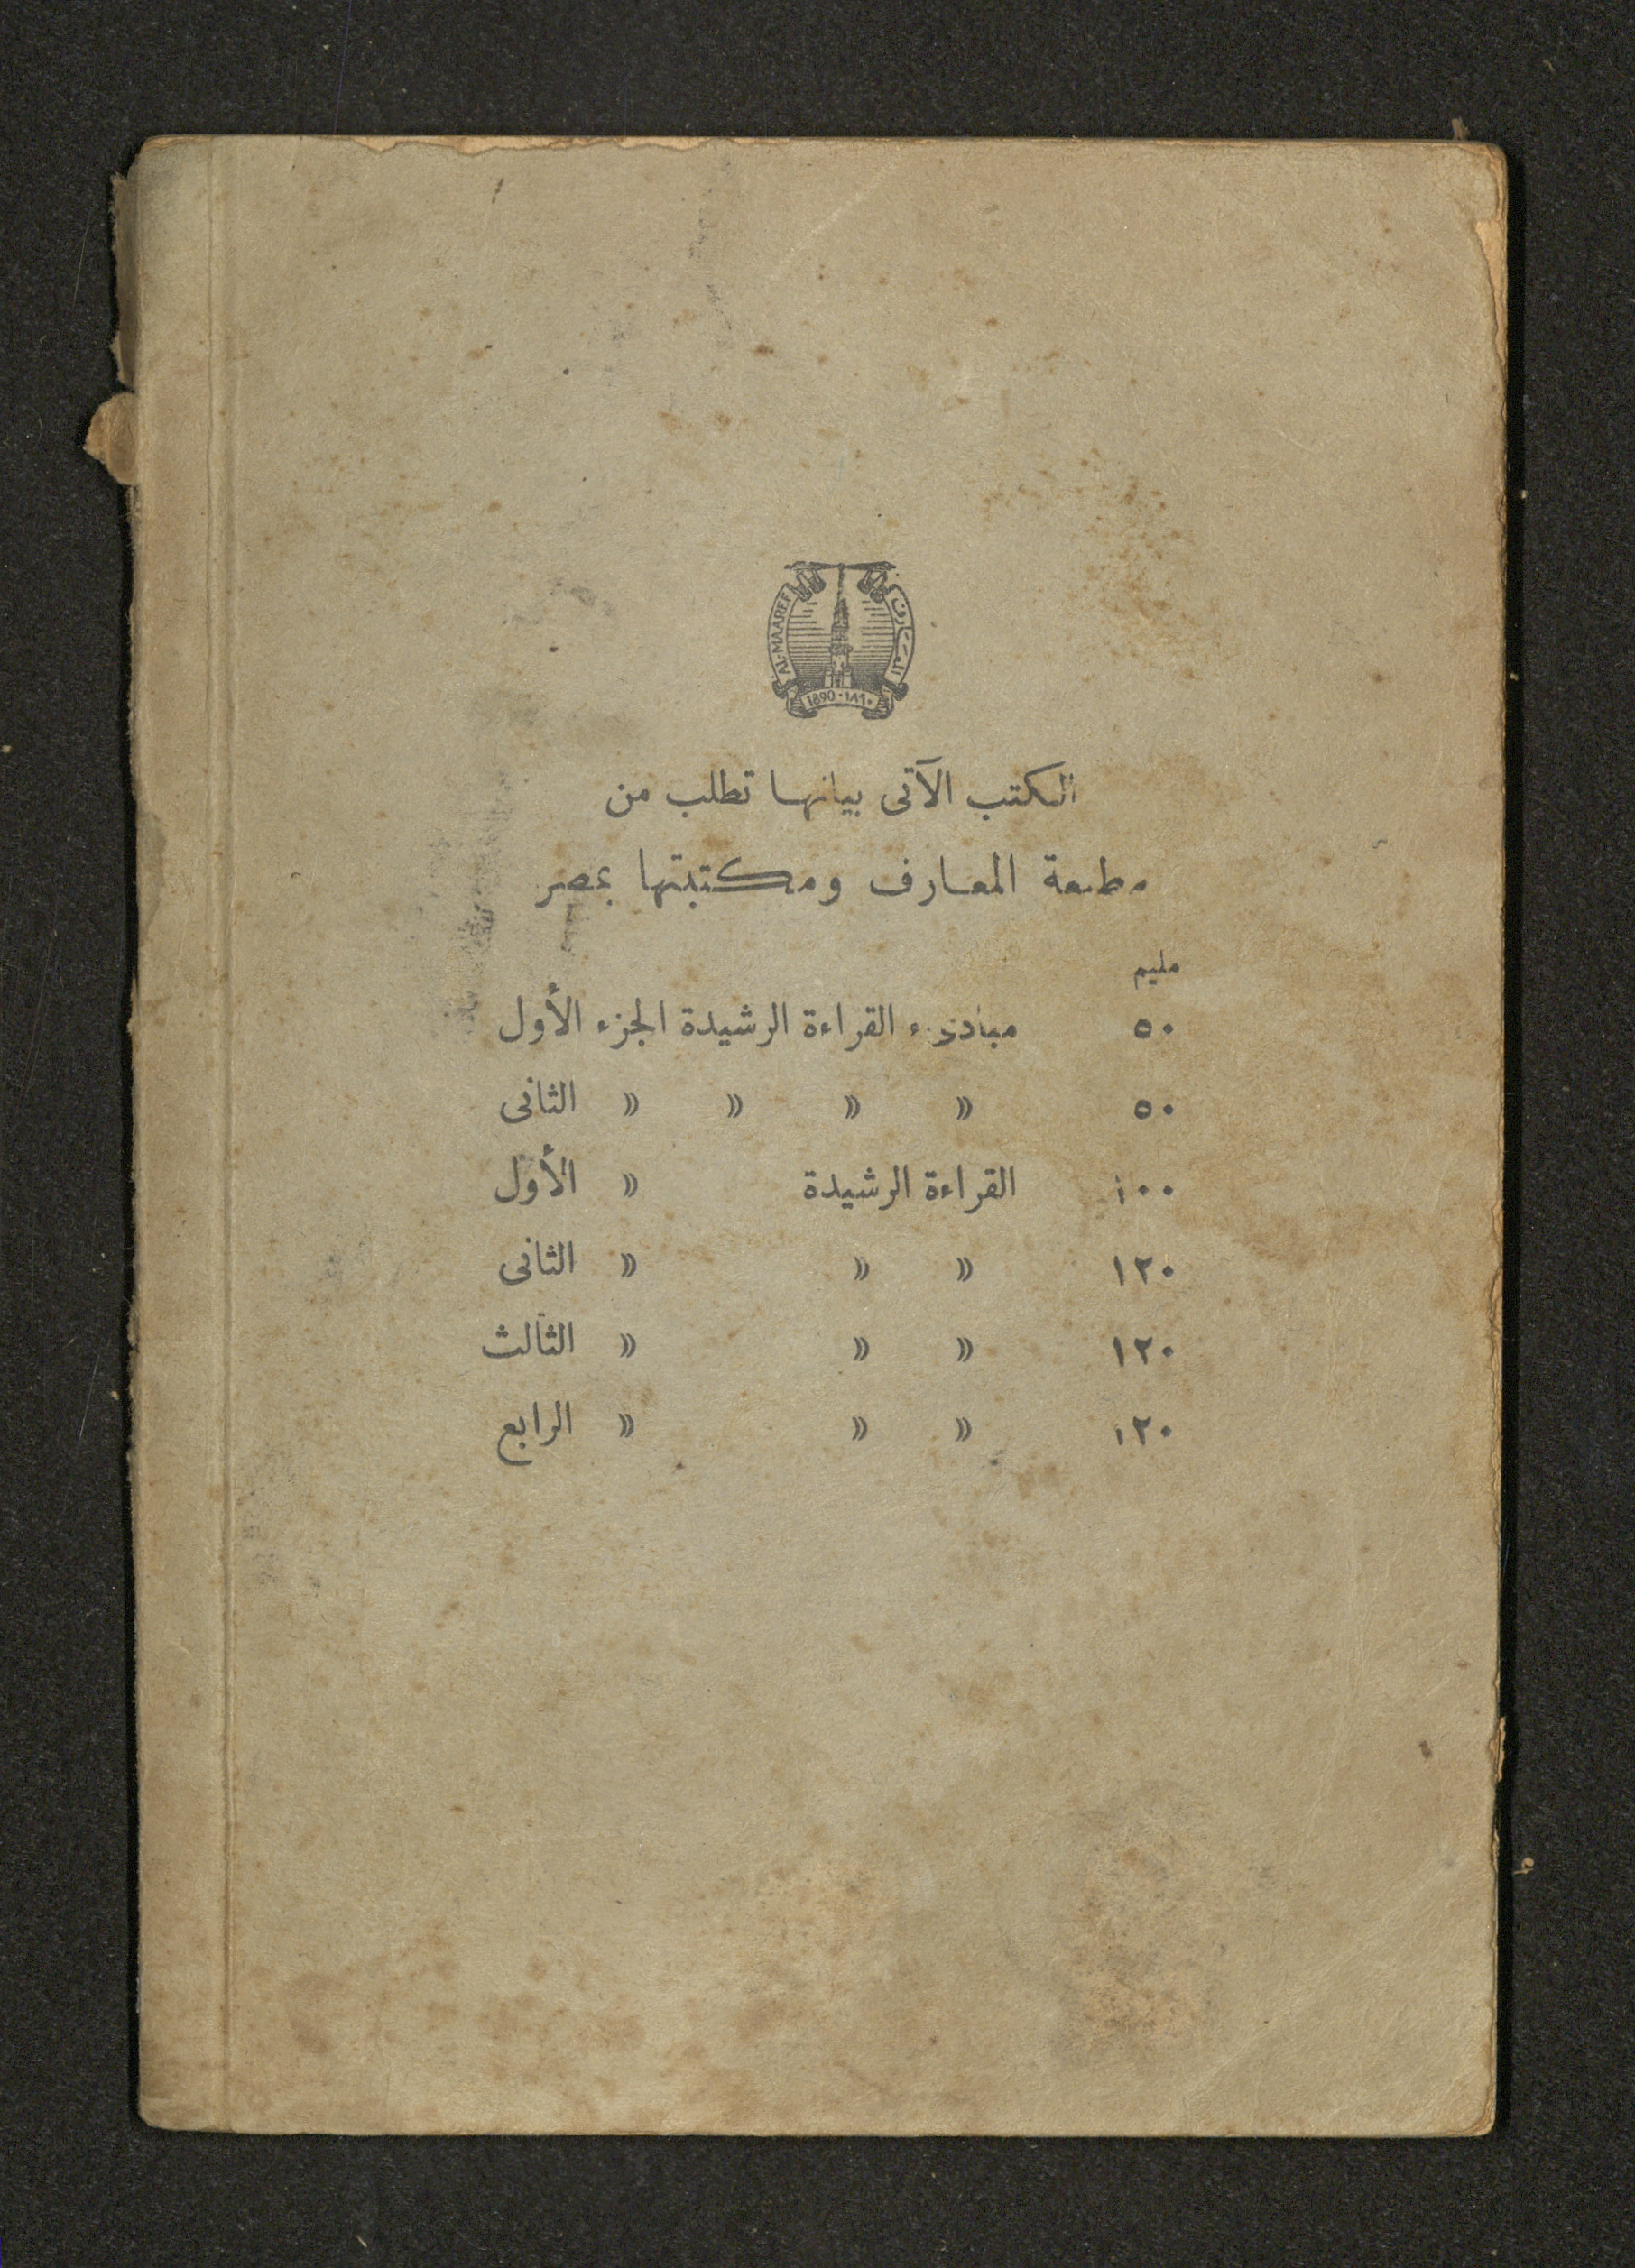 AL-MAAREF المعارف
1890 · ١٨٩٠
الكتب الآتى بيانها تطلب من
مطبعة المعارف ومكتبتها بمصر
مليم
٥٠ مبادىء القراءة الرشيدة الجزء الأول
٥٠ » » » » الثانى
١٠٠ القراءة الرشيدة » الأول
١٢٠ » » » الثانى
١٢٠ » » » الثالث
١٢٠ » » » الرابع